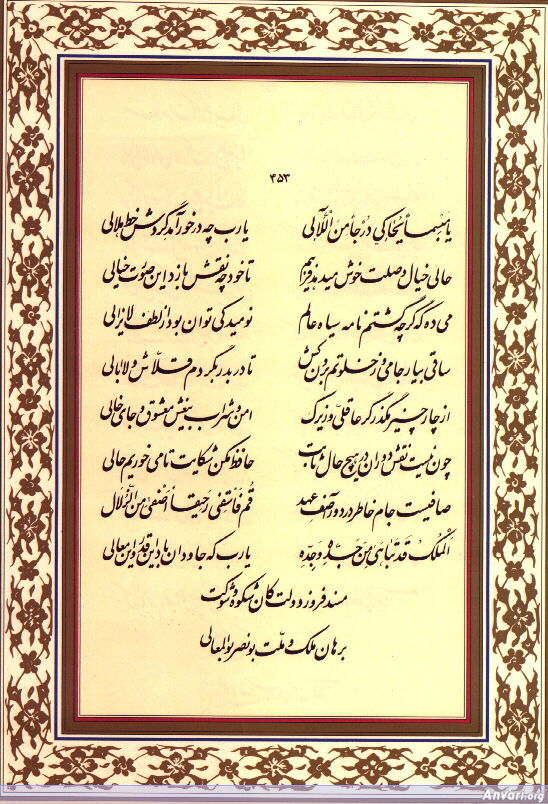 ۴۵۳
یا مبسماً یحاکی درجاً من اللآلی یارب چه درخور آمد گردش خط هلالی
حالی خیال وصلت خوش میدهد فریبم تا خود چه نقش بازد این صورت خیالی
می ده که گرچه گشتم نامه سیاه عالم نومید کی توان بود از لطف لایزالی
ساقی بیار جامی وز خلوتم برون کش تا در بدر بگردم قلاش و لاابالی
از چار چیز مگذر گر عاقلی و زیرک امن و شراب بیغش معشوق و جای خالی
چون نیست نقش دوران در هیچ حال ثابت حافظ مکن شکایت تا می خوریم حالی
صافیست جام خاطر در دور آصف عهد قم فاسقنی رحیقاً اصفی من الزلال
الملک قد تباهی من جده و جده یارب که جاودان باد این قدر و این معالی
مسند فروز دولت کان شکوه و شوکت
برهان ملک و ملت بونصر بوالمعالی
Anvari.org